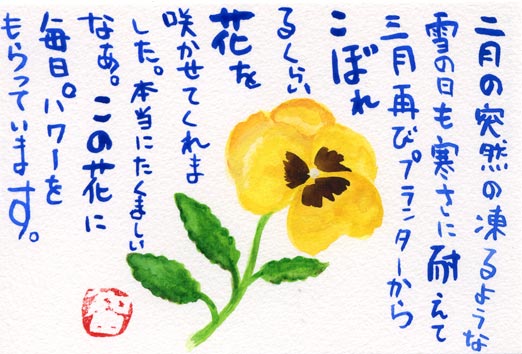 二月の突然の凍るような
雪の日も寒さに耐えて
三月再びプランターから
こぼれ
るくらい
花を
咲かせてくれま
した。本当にたくましい
なあ。この花に
毎日。パワーを
もらっています。